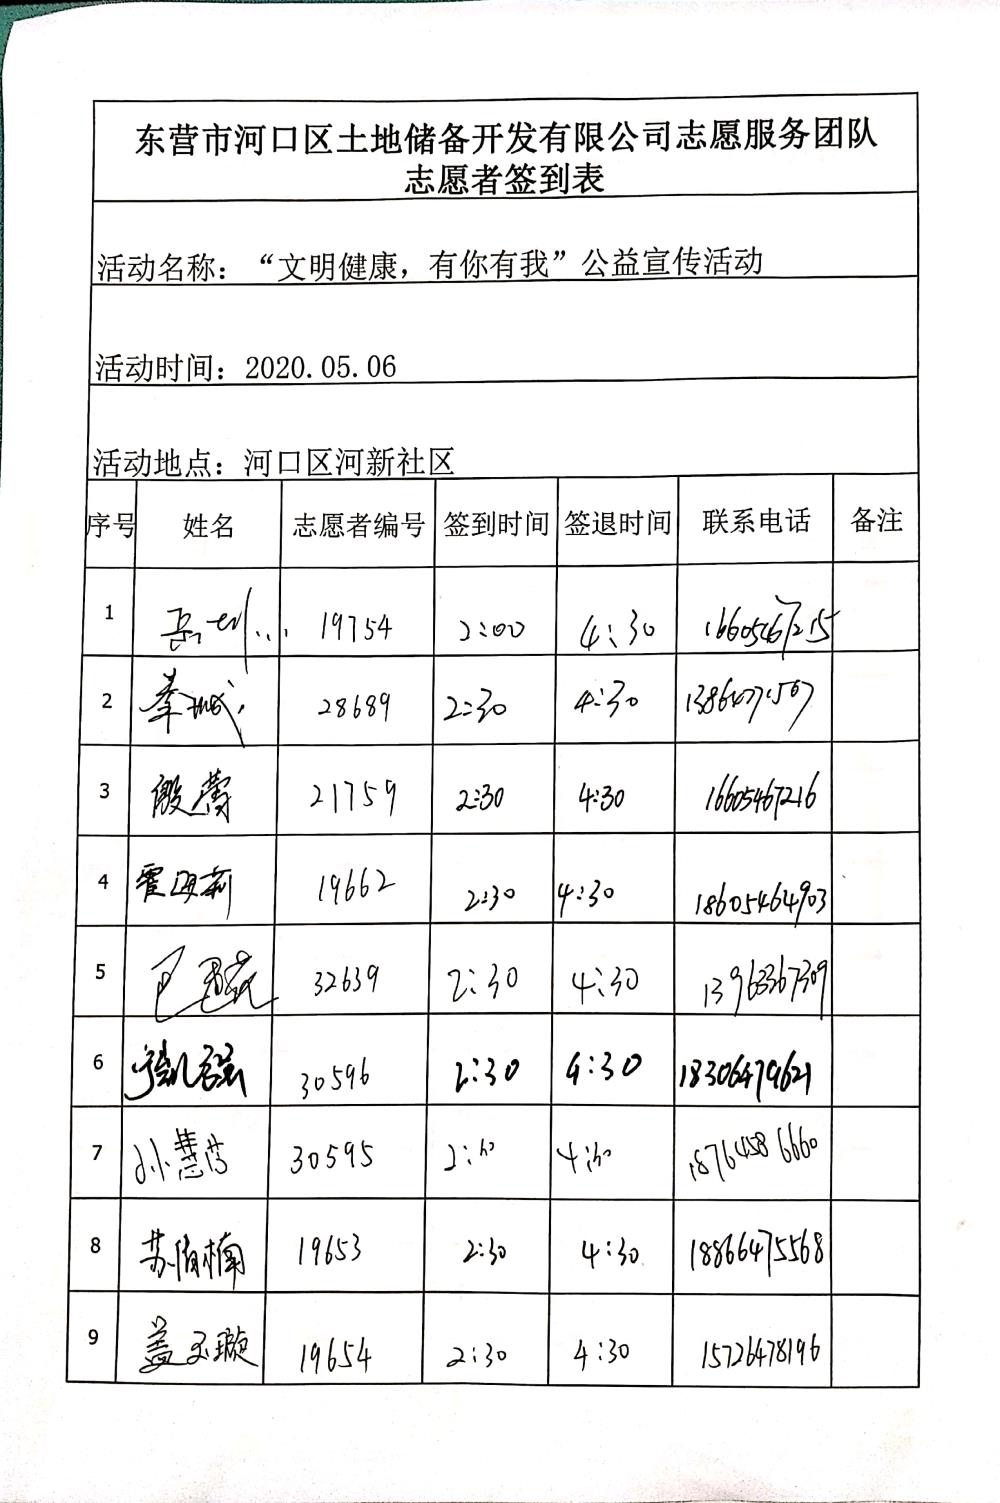 东营市河口区土地储备开发有限公司志愿服务团队
志愿者签到表
活动名称：“文明健康，有你有我”公益宣传活动
活动时间：2020.05.06
活动地点：河口区河新社区
序号 姓名 志愿者编号 签到时间 签退时间 联系电话 备注
1 19754 2:00 4:30 16605467215
2 28689 2:30 4:30
3 殷蕾 21759 2:30 4:30 16605467216
4 霍海莉 19662 2:30 4:30 18605464903
5 32639 2:30 4:30 13963367309
6 30596 2:30 4:30 18306479621
7 孙慧莹 30595 2:30 4:30 18764586660
8 苏伯楠 19653 2:30 4:30 18866475568
9 盖玉璇 19654 2:30 4:30 15726478196